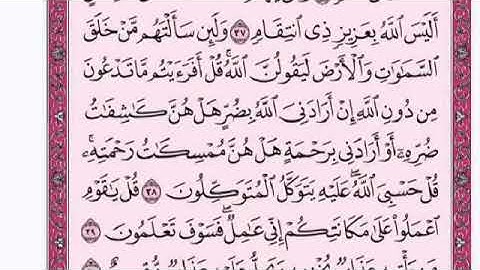 أَلَيْسَ اللَّهُ بِعَزِيزٍ ذِي انتِقَامٍ ٣٧ وَلَئِن سَأَلْتَهُم مَّنْ خَلَقَ
السَّمَاوَاتِ وَالْأَرْضَ لَيَقُولُنَّ اللَّهُ ۚ قُلْ أَفَرَءَيْتُم مَّا تَدْعُونَ
مِن دُونِ اللَّهِ إِنْ أَرَادَنِيَ اللَّهُ بِضُرٍّ هَلْ هُنَّ كَاشِفَاتُ
ضُرِّهِ أَوْ أَرَادَنِي بِرَحْمَةٍ هَلْ هُنَّ مُمْسِكَاتُ رَحْمَتِهِ ۚ
قُلْ حَسْبِيَ اللَّهُ ۖ عَلَيْهِ يَتَوَكَّلُ الْمُتَوَكِّلُونَ ٣٨ قُلْ يَاقَوْمِ
اعْمَلُوا عَلَىٰ مَكَانَتِكُمْ إِنِّي عَامِلٌ ۖ فَسَوْفَ تَعْلَمُونَ ٣٩